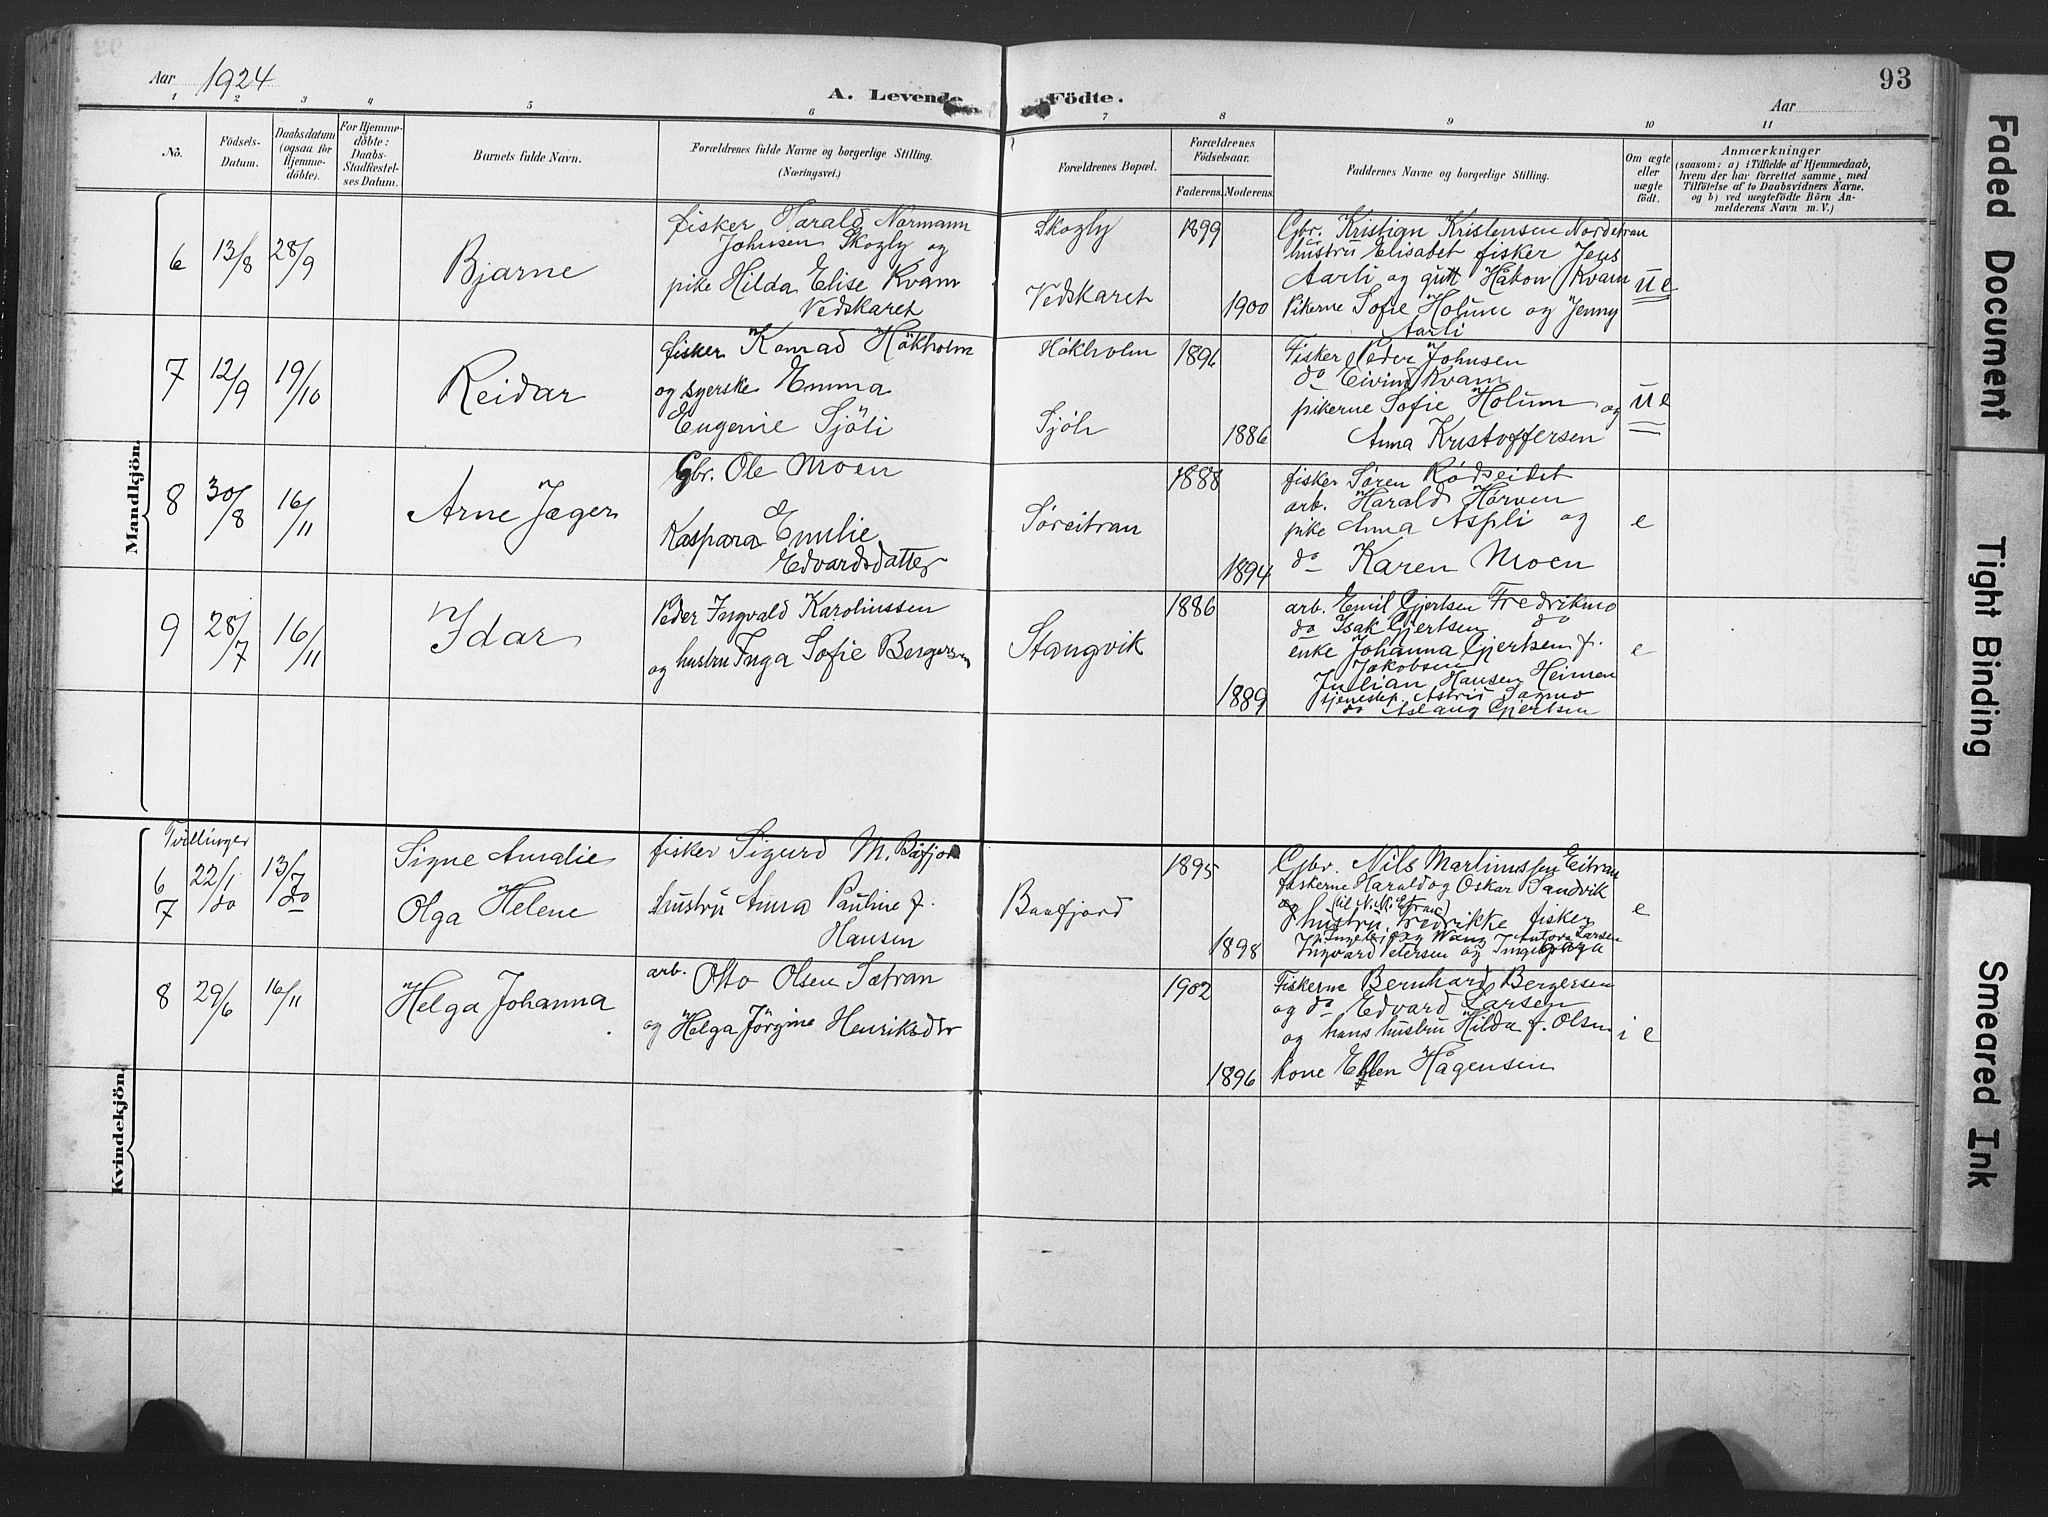 Aar 1924
A. Levende Födte.
93
Aar
1 2 3 4 5 6 7 8 9 10 11
No.
Födsels-
Datum.
Daabsdatum
(ogsaa for
Hjemme-
döbte).
For Hjemme-
döbte:
Daabs-
Stadfæstel-
ses Datum.
Barnets fulde Navn.
Forældrenes fulde Navne og borgerlige Stilling.
(Næringsvei.)
Forældrenes Bopæl.
Forældrenes
Födselsaar.
Faderens. Moderens.
Faddernes Navne og borgerlige Stilling.
Om ægte
eller
uægte
födt.
Anmærkninger
(saasom: a) i Tilfælde af Hjemmedaab,
hvem der har forrettet samme, med
Tilföielse af to Daabsvidners Navne,
og b) ved uegtefödte Börn An-
melderens Navn m. V.)
Mandkjön.
6 13/8 28/9
Bjarne
fisker Harald Normann
Johnsen Skogly og
pike Hilda Elise Kvam
Vedskaret
Skogly
Vedskaret
1899
1900
Gbr. Kristian Kristensen Nordeitran
hustru Elisabet fisker Jens
Aarli og gutt Håkon Kvam
Pikerne Sofie Holum og Jenny
Aarli
ue
7 12/9 19/10
Reidar
fisker Konrad Hökholm
og syerske Emma
Eugenie Sjöli
Hökholm
Sjöli
1896
1886
Fisker Peder Johnsen
do Eivind Kvam
pikerne Sofie Holum og
Anna Kristoffersen
ue
8 30/8 16/11
Arne Jæger
Gbr. Ole Moen
Kaspara Emilie
Edvardsdatter
Søreitran
1888
1894
fisker Søren Rødseidet
arb. Harald Horven
pike Anna Aspli og
do Karen Moen
e
9 28/7 16/11
Idar
Peder Ingvald Karolinssen
og hustru Inga Sofie Bergersen
Stangvik
1886
1889
arb. Emil Gjertsen Fredrikmo
do Isak Gjertsen do
enke Johanna Gjertsen f.
Jakobsen
Julian Hansen Heimen
tjenestep. Astrid Sagmo
do Aslaug Gjertsen
e
Kvindekjön.
Tvillinger
6 22/1 13/7
7 do do
Signe Amalie
Olga Helene
fisker Sigurd M. Båfjord
hustru Anna Pauline f.
Hansen
Baafjord
1895
1898
Gbr. Nils Martinussen Eitran
fiskerne Harald og Oskar Sandvik
og (til N. M. Eitran)
hustru Fredrikke fisker
Ingvard Petersen og
e
8 29/6 16/11
Helga Johanna
arb. Otto Olsen Sætran
og Helga Jörgine Henriksdtr
1902
1896
Fiskerne Bernhard Bergersen
og do Edvard Larsen
og hans hustru Hilda f. Olsen
kone Ellen Hågensen
i e
Faded Document
Tight Binding
Smeared Ink